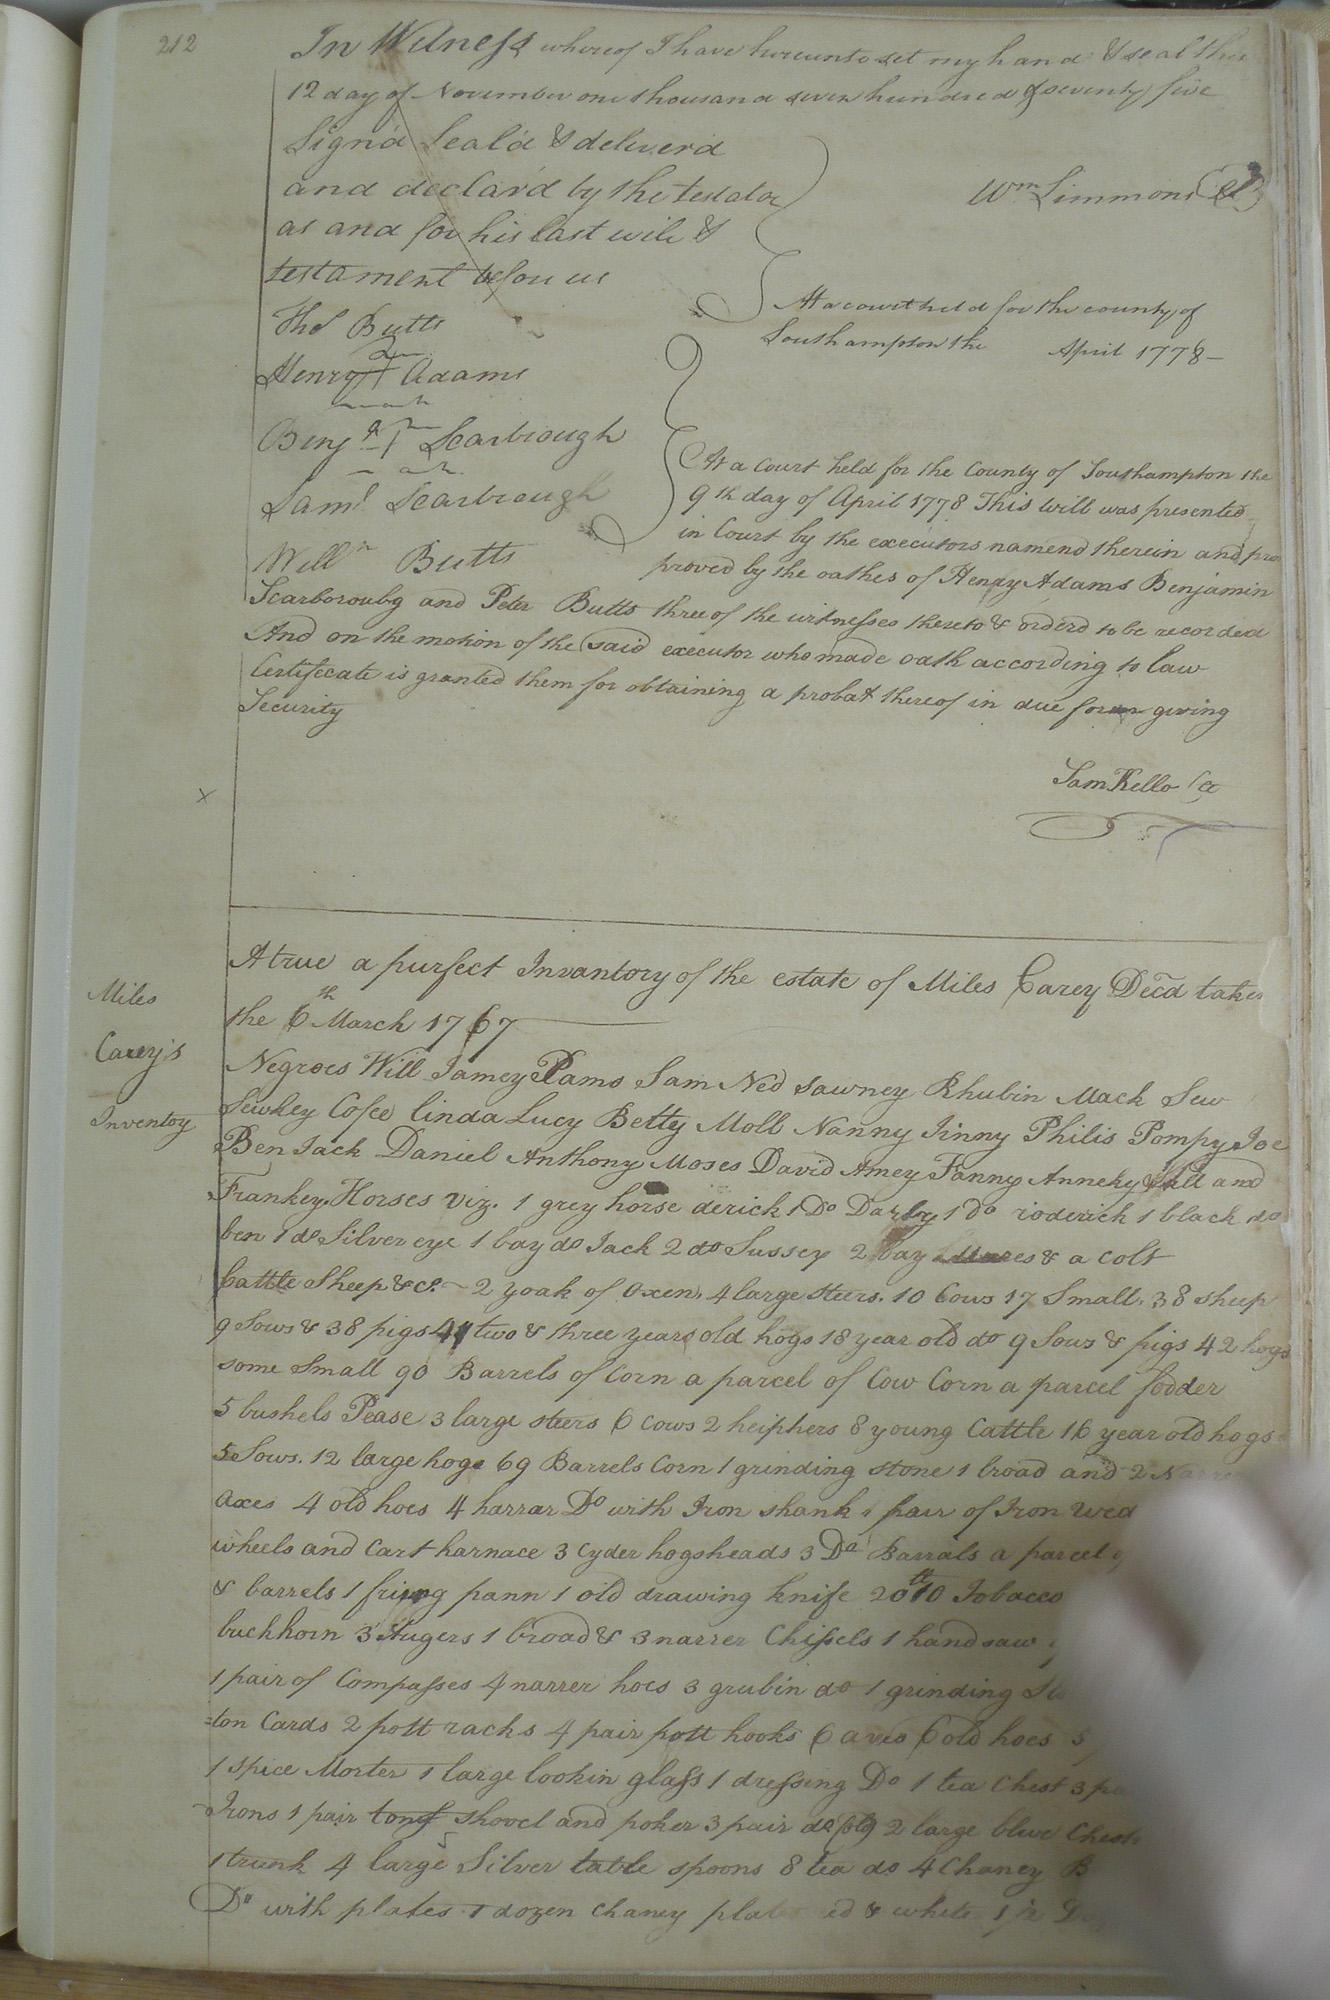 212
In Witness whereof I have hereunto set my hand & seal this
12 day of November one thousand seven hundred & seventy five
Sign'd Seal'd & deliverd
and declar'd by the testator
as and for his last will &
testament before us
Wm Simmons
Thos Butts
At a court held for the county of
Southampton the April 1778
Henry Adams
Benj Scarbrough
Saml Scarbrough
Willm Butts
At a Court held for the County of Southampton the
9th day of April 1778 This will was presented
in Court by the executors namend therein and pro
proved by the oathes of Henry Adams Benjamin
Scarboroubg and Peter Butts three of the witnesses thereto & orderd to be recorded
And on the motion of the said executor who made oath according to law
Certifecate is granted them for obtaining a probat thereof in due form giving
Security
Sam Kello
x
Miles
Carey's
Inventoy
A true a purfect Invantory of the estate of Miles Carey Decd taken
the 6th March 1767
Negroes Will Jamey Pamo Sam Ned Sawney Rhubin Mack Sew
Sewkey Cofee Linda Lucy Betty Moll Nanny Jinny Philis Pompy Joe
Ben Jack Daniel Anthony Moses David Amey Fanny Anneky and
Frankey. Horses Viz. 1 grey horse derick 1 Do Darby 1 do roderick 1 black do
ben 1 do Silver eye 1 bay do Jack 2 do Sussey 2 bay Mares & a Colt
Cattle Sheep &c. 2 yoak of Oxen, 4 large Steers. 10 Cows 17 Small. 38 sheep
9 Sows & 38 pigs two & three years old hogs 18 year old do 9 Sows & pigs 42 hogs
some Small 90 Barrels of Corn a parcel of Cow Corn a parcel fodder
5 bushels Pease 3 large steers 6 Cows 2 heiphers 8 young Cattle 16 year old hogs
5 Sows. 12 large hogs 69 Barrels Corn 1 grinding stone 1 broad and 2
axes 4 old hoes 4 harrar Do with Iron shank 1 pair of Iron Wed
wheels and Cart harnace 3 Cyder hogsheads 3 Do Barrals a parcel
& barrels 1 friing pann 1 old drawing knife Tobacco
buckhorn 3 Augers 1 broad & 3 narrer Chissels 1 handsaw
1 pair of Compasses 4 narrer hoes 3 grubin do 1 grinding
=ton Cards 2 pott racks 4 pair pott hooks 6 axes 6 old hoes 5
1 spice Morter 1 large lookin glass 1 dressing Do 1 tea Chest 3
Irons 1 pair tongs shovel and poker 3 pair do 2 large blue Chests
1 trunk 4 large Silver table spoons 8 tea do 4 Chaney
Do with plates 1 dozen Chaney & white